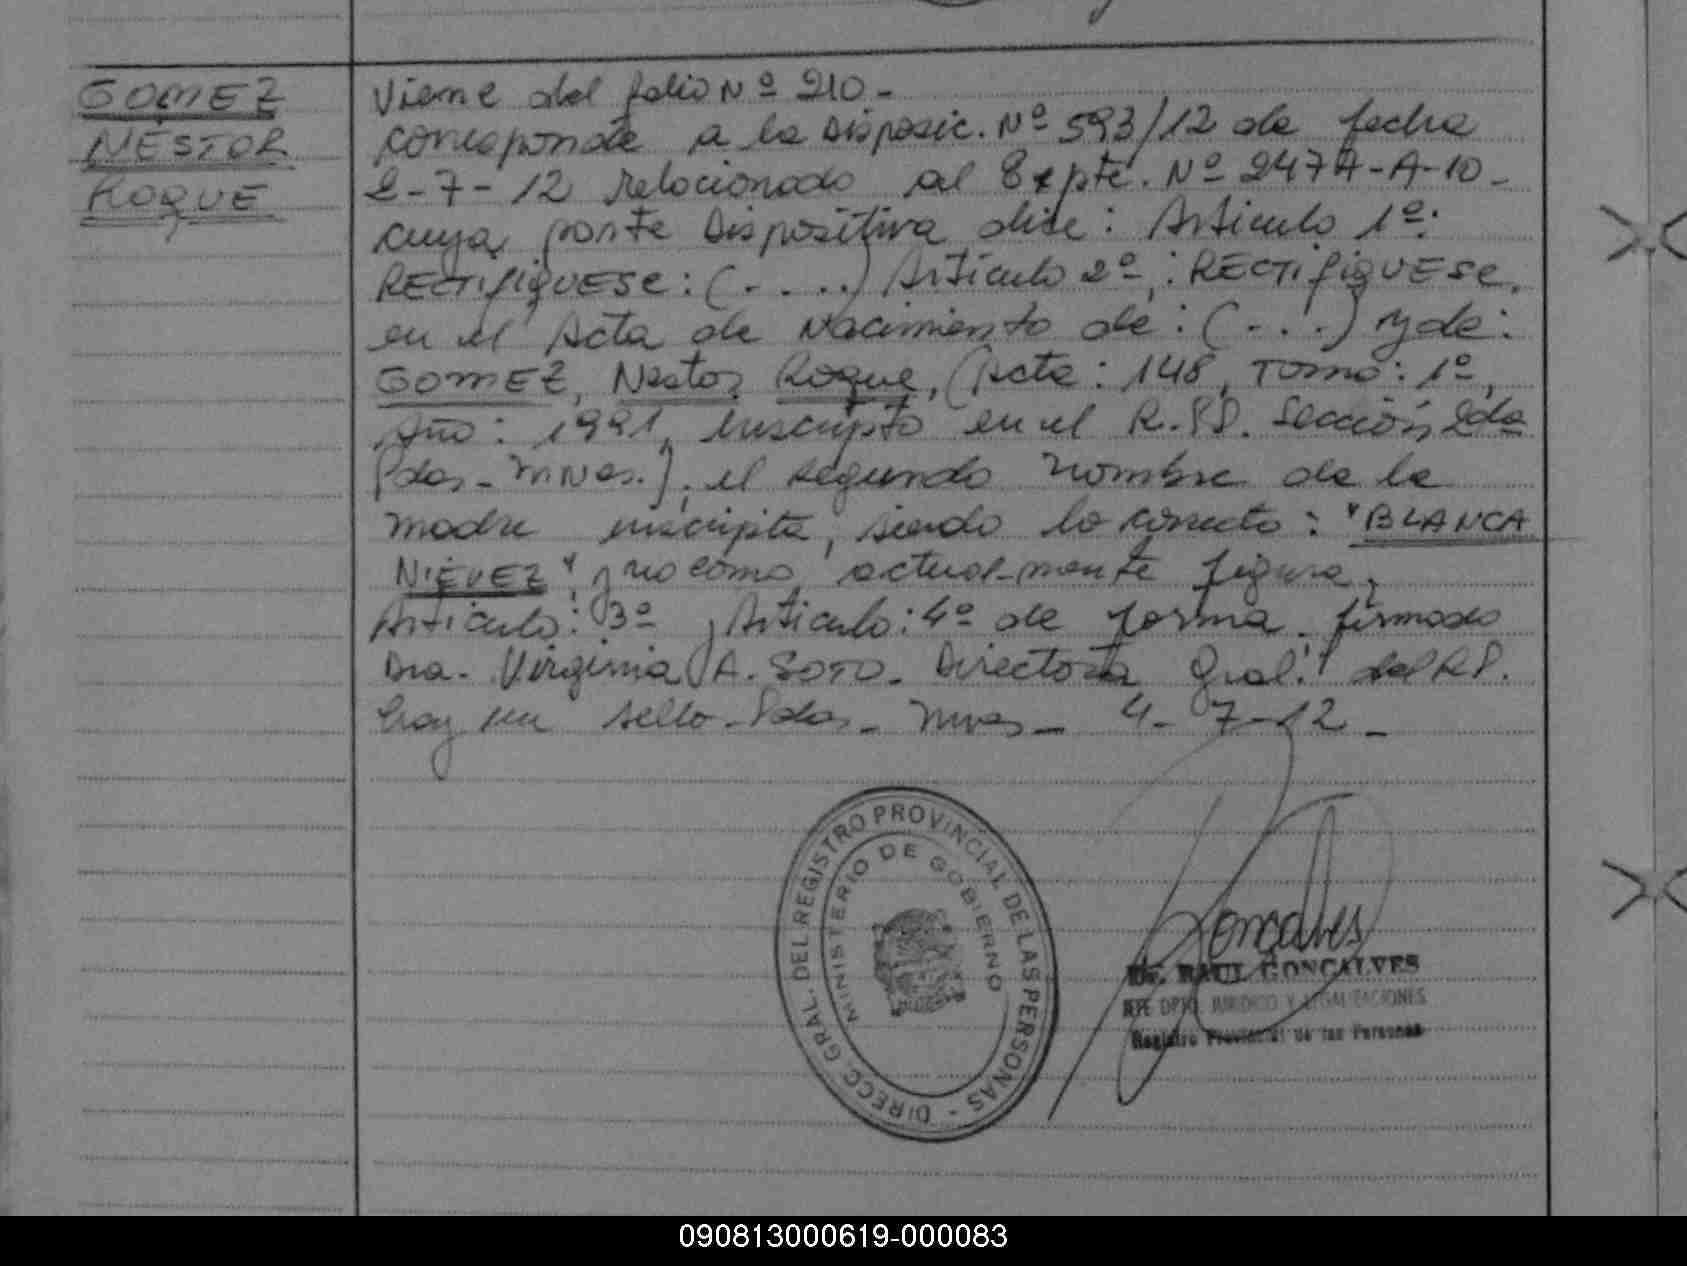 GOMEZ
NESTOR
ROQUE
Viene del folio Nº 210-
corresponde a la Disposic. Nº 593/12 de fecha
2-7-12 relacionado al Expte. Nº 2474-A-10-
cuya parte Dispositiva dice: Articulo 1º:
RECTIFIQUESE: (....) Artículo 2º: RECTIFIQUESE,
en el Acta de Nacimiento de: (...) y de:
GOMEZ, Nestor Roque, (Acta: 148, Tomo: 1º,
Año: 1991, Inscripto en el R.P.P. Sección 2da
Pdas-Mnes.), el segundo nombre de la
madre inscripta, siendo lo correcto: "BLANCA
NIEVEZ" y no como actual-mente figura,
Articulo: 3º, Articulo: 4º de forma. firmado
Dra. Virginia A. SOTO. Directora Gral. del R.P.
hay un sello-Pdas-Mnes- 4-7-12-
DIRECC. GRAL. DEL REGISTRO PROVINCIAL DE LAS PERSONAS -
MINISTERIO DE GOBIERNO
Goncalves
Dr. RAUL GONCALVES
JEFE DPTO. JURIDICO Y LEGALIZACIONES
Registro Provincial de las Personas
090813000619-000083